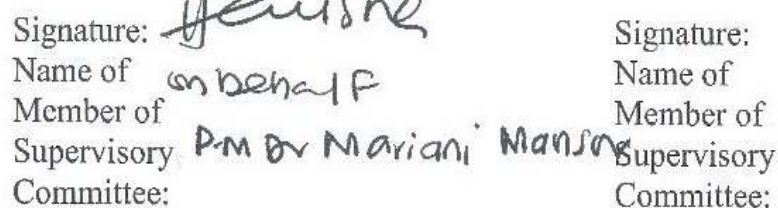 Signature:
Name of on behalf
Member of
Supervisory P.M Dr Mariani Mansor
Committee:
Signature:
Name of
Member of
Supervisory
Committee: